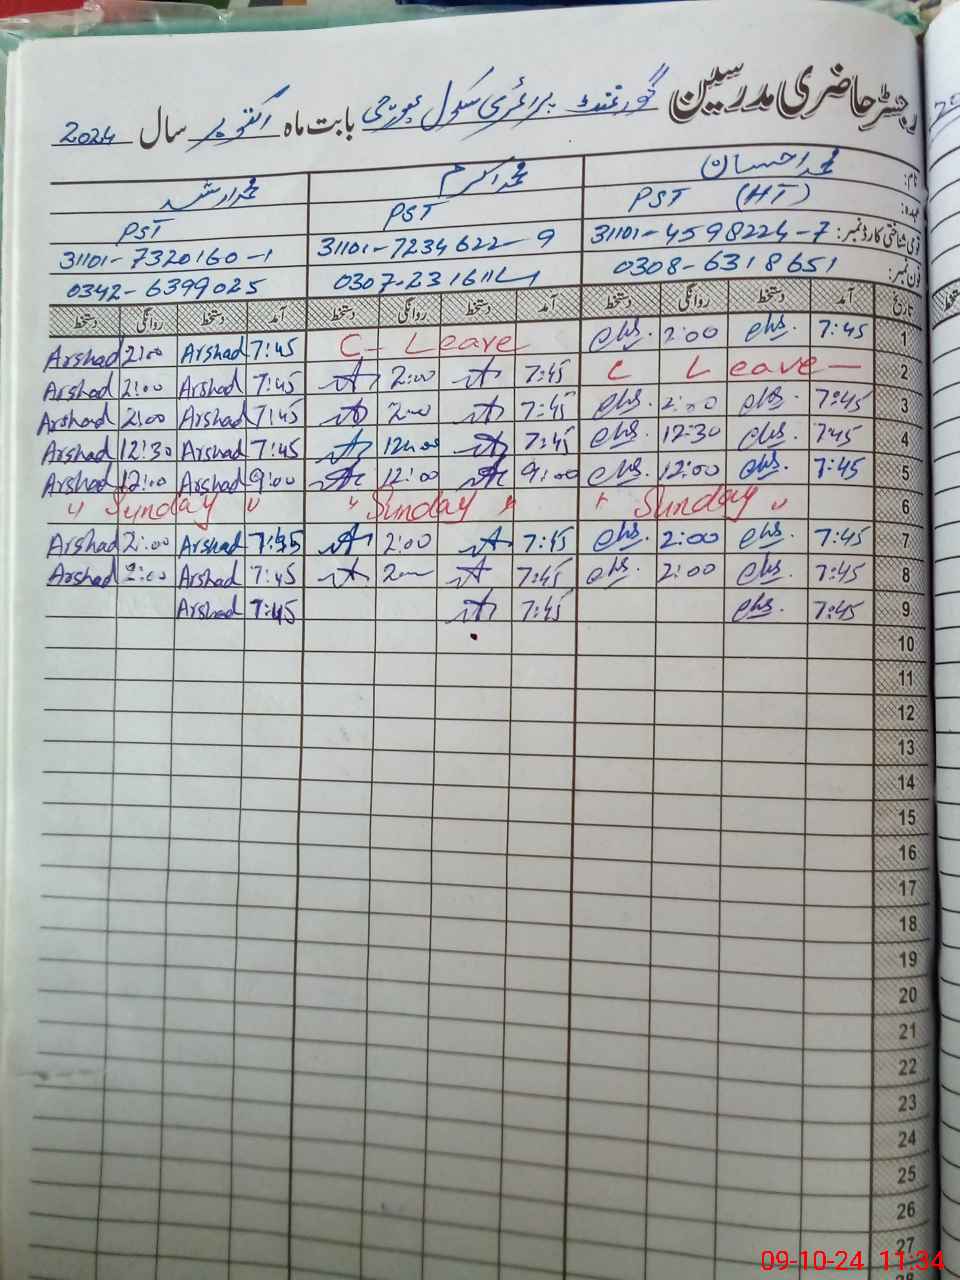 رجسٹر حاضری مدرسین گورنمنٹ پرائمری سکول بابت ماہ اکتوبر سال 2024
نام: محمد احسان محمد اکرم محمد ارشد
عہدہ: PST (HT) PST PST
قومی شناختی کارڈ نمبر: 31101-4598224-7 31101-7234622-9 31101-7320160-1
فون نمبر: 0308-6318651 0342-6399025
تاریخ آمد دستخط روانگی دستخط آمد دستخط روانگی دستخط آمد دستخط روانگی دستخط
1 7:45 2:00 C- Leave 7:45 Arshad 2:00 Arshad
2 C Leave 7:45 2:00 7:45 Arshad 2:00 Arshad
3 7:45 2:00 7:45 200 7:45 Arshad 2:00 Arshad
4 7:45 12:30 7:45 7:45 Arshad 12:30 Arshad
5 7:45 12:00 9:00 12:00 9:00 Arshad 12:00 Arshad
6 " Sunday " " Sunday " " Sunday "
7 7:45 2:00 7:45 2:00 Arshad 2:00 Arshad
8 7:45 2:00 7:45 7:45 Arshad 2:00 Arshad
9 7:45 7:45 7:45 Arshad
10
11
12
13
14
15
16
17
18
19
20
21
22
23
24
25
26
27
09-10-24 11:34